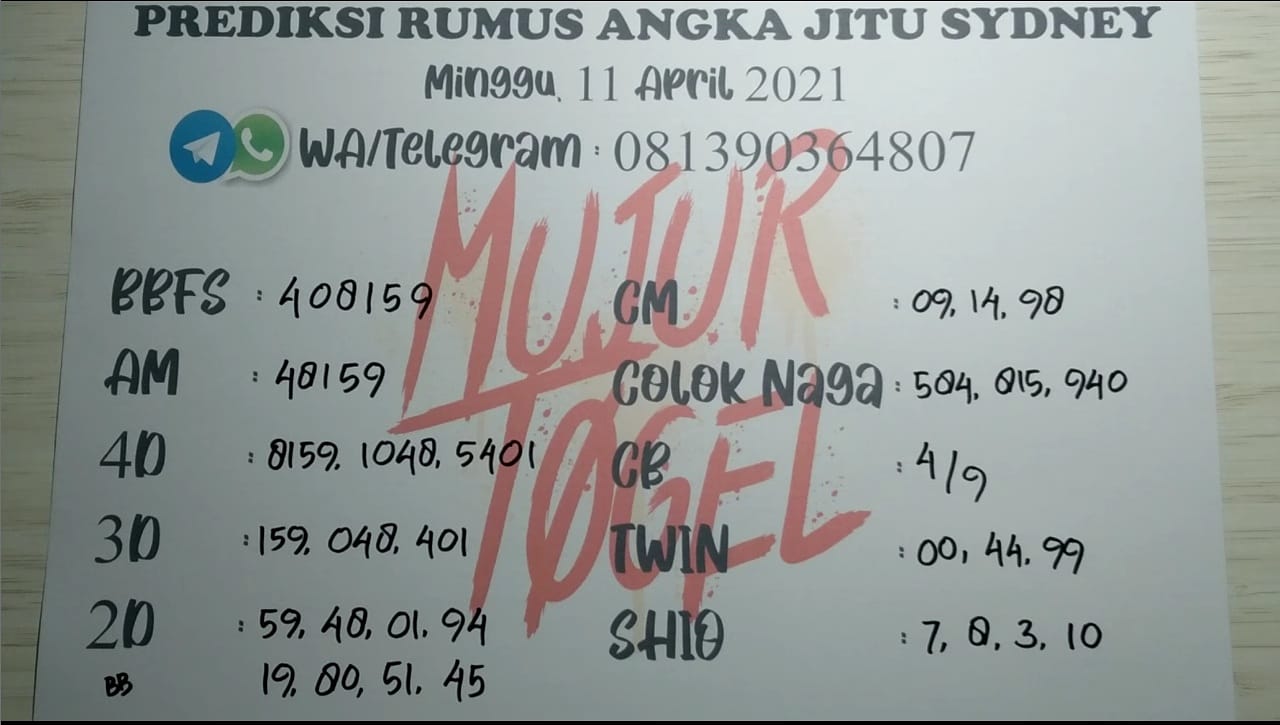 PREDIKSI RUMUS ANGKA JITU SYDNEY
Minggu, 11 April 2021
WA/Telegram : 081390364807
MUJUR
TOGEL
BBFS : 408159
CM : 09, 14, 98
AM : 48159
COLOK Naga : 584, 815, 940
4D : 8159, 1048, 5401
CB : 4/9
3D : 159, 048, 401
TWIN : 00, 44, 99
2D : 59, 48, 01, 94
SHIO : 7, 8, 3, 10
BB 19, 80, 51, 45